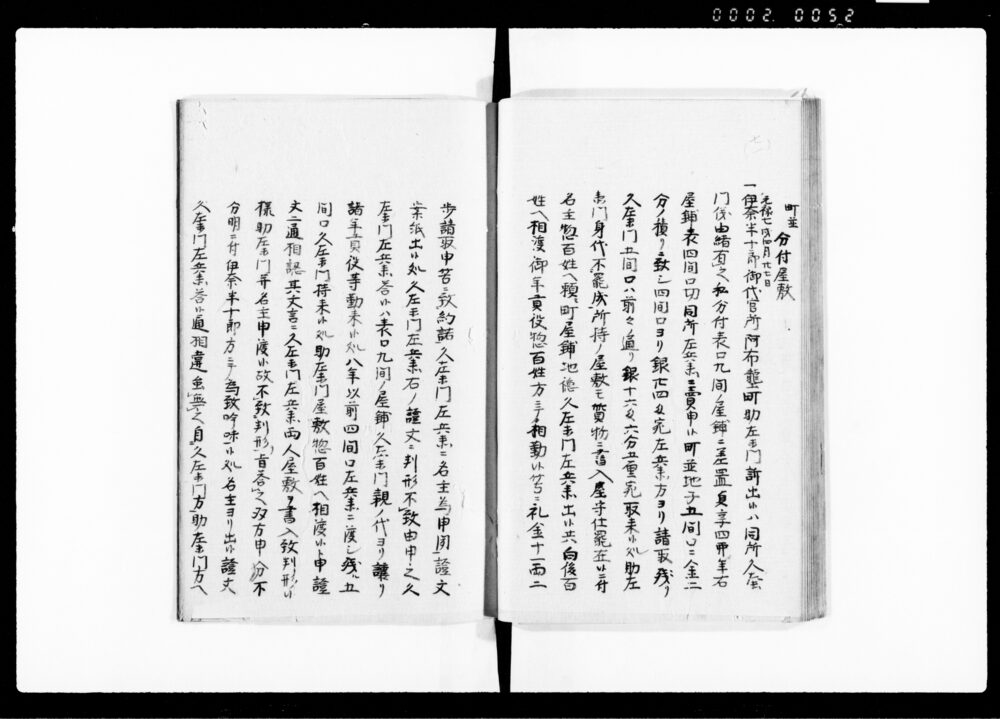 0002 0052
(七一)
町並
分付屋敷
元禄七戌四月廿七日
一伊奈半十郎御代官所阿布聟町助左衛門訴出候ハ同所久左衛
門儀由緒有之私分付表口九間ノ屋鋪ニ差置貞享四卯年右
屋鋪表四間口切同所左兵衛ニ賣申候町並地子五間口ニ金二
分ノ積リニ致シ四間口ヨリ銀廿四匁宛左兵衛方ヨリ請取残リ
久左衛門五間口ハ前々ノ通リ銀十六匁六分五重宛取来候処助左
衛門身代不罷成所持ノ屋敷モ質物ニ書入屋守仕罷在候ニ付
名主惣百姓ヘ頼町屋鋪地徳久左衛門左兵衛出候共向後百
姓ヘ相渡御年貢役惣百姓方ニテ相勤候筈ニ礼金十一両二
歩請取申筈ニ致約諾久左衛門左兵衛ニ名主為申聞證文
案紙出候処久左衛門左兵衛右ノ證文ニ判形不致由申之久
左衛門左兵衛答候ハ表口九間ノ屋鋪久左衛門親ノ代ヨリ譲リ
諸年貢役等勤来候処八年以前四間口左兵衛ニ渡シ残ル五
間口久左衛門持来候処助左衛門屋敷惣百姓ヘ相渡候ト申證
文二通相認其文言ニ久左衛門左兵衛両人屋敷ヲ書入致判形候
様助左衛門并名主申渡候故不致判形旨答之双方申分不
分明ニ付伊奈半十郎方ニテ為致吟味候処名主ヨリ出候證文
久左衛門左兵衛答候通相違無之自久左衛門方助左衛門方ヘ